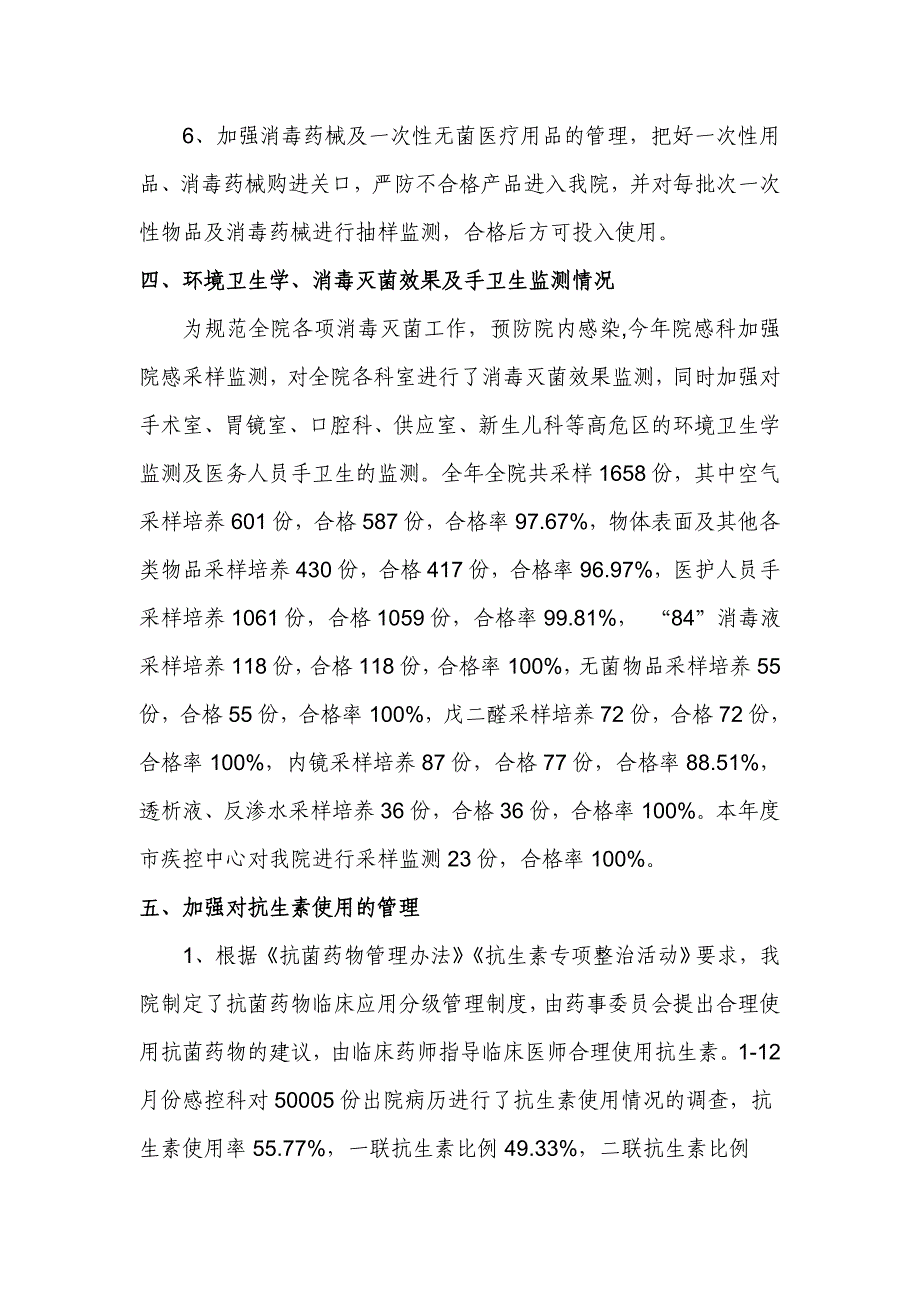 6、加强消毒药械及一次性无菌医疗用品的管理，把好一次性用
品、消毒药械购进关口，严防不合格产品进入我院，并对每批次一次
性物品及消毒药械进行抽样监测，合格后方可投入使用。
四、环境卫生学、消毒灭菌效果及手卫生监测情况
为规范全院各项消毒灭菌工作，预防院内感染,今年院感科加强
院感采样监测，对全院各科室进行了消毒灭菌效果监测，同时加强对
手术室、胃镜室、口腔科、供应室、新生儿科等高危区的环境卫生学
监测及医务人员手卫生的监测。全年全院共采样 1658 份，其中空气
采样培养 601 份，合格 587 份，合格率 97.67%，物体表面及其他各
类物品采样培养 430 份，合格 417 份，合格率 96.97%，医护人员手
采样培养 1061 份，合格 1059 份，合格率 99.81%， “84”消毒液
采样培养 118 份，合格 118 份，合格率 100%，无菌物品采样培养 55
份，合格 55 份，合格率 100%，戊二醛采样培养 72 份，合格 72 份，
合格率 100%，内镜采样培养 87 份，合格 77 份，合格率 88.51%，
透析液、反渗水采样培养 36 份，合格 36 份，合格率 100%。本年度
市疾控中心对我院进行采样监测 23 份，合格率 100%。
五、加强对抗生素使用的管理
1、根据《抗菌药物管理办法》《抗生素专项整治活动》要求，我
院制定了抗菌药物临床应用分级管理制度，由药事委员会提出合理使
用抗菌药物的建议，由临床药师指导临床医师合理使用抗生素。1-12
月份感控科对 50005 份出院病历进行了抗生素使用情况的调查，抗
生素使用率 55.77%，一联抗生素比例 49.33%，二联抗生素比例